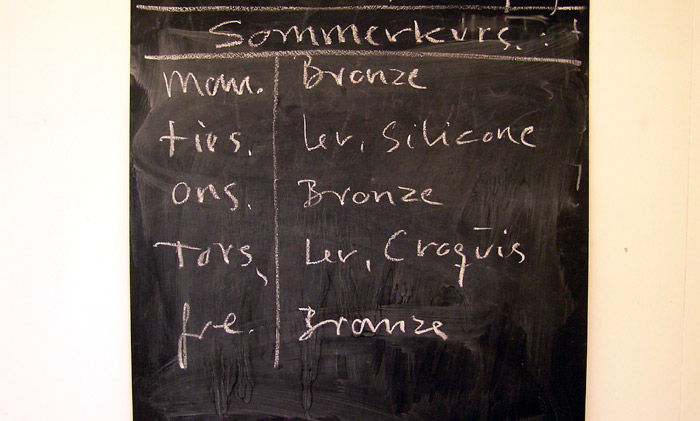 Sommerkurs.
man. Bronze
tirs. Ler, Silicone
ons. Bronze
Tors, Ler, Croquis
fre. Bronze